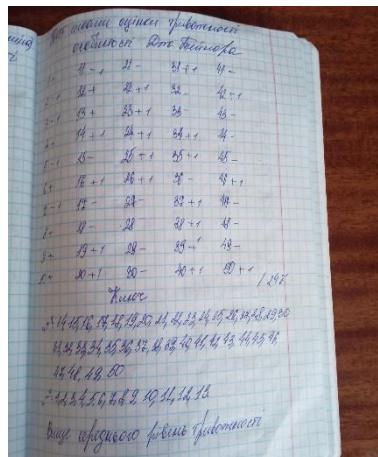 оцінки тривожності
особистості Дж. Тейлора
1 - 11 - 1 21 - 31 + 1 41 -
2 - 1 12 + 22 + 1 32 - 42 + 1
3 - 13 + 23 + 1 33 - 43 -
4 - 14 + 1 24 + 1 34 + 1 44 -
5 - 1 15 - 25 + 1 35 + 1 45 -
6 + 16 + 1 26 + 1 36 - 46 + 1
7 - 1 17 - 27 - 37 + 1 47 -
8 - 18 - 28 38 + 1 48 -
9 + 19 + 1 29 - 39 - 49 -
10 + 20 + 1 30 - 40 + 1 50 + 1
/ 24
Ключ
14, 15, 16, 17, 18, 19, 20, 21, 22, 23, 24, 25, 26, 27, 28, 29, 30
31, 32, 33, 34, 35, 36, 37, 38, 39, 40, 41, 42, 43, 44, 45, 46,
47, 48, 49, 50
- 1, 2, 3, 4, 5, 6, 7, 8, 9, 10, 11, 12, 13.
Вище середнього рівень тривожності